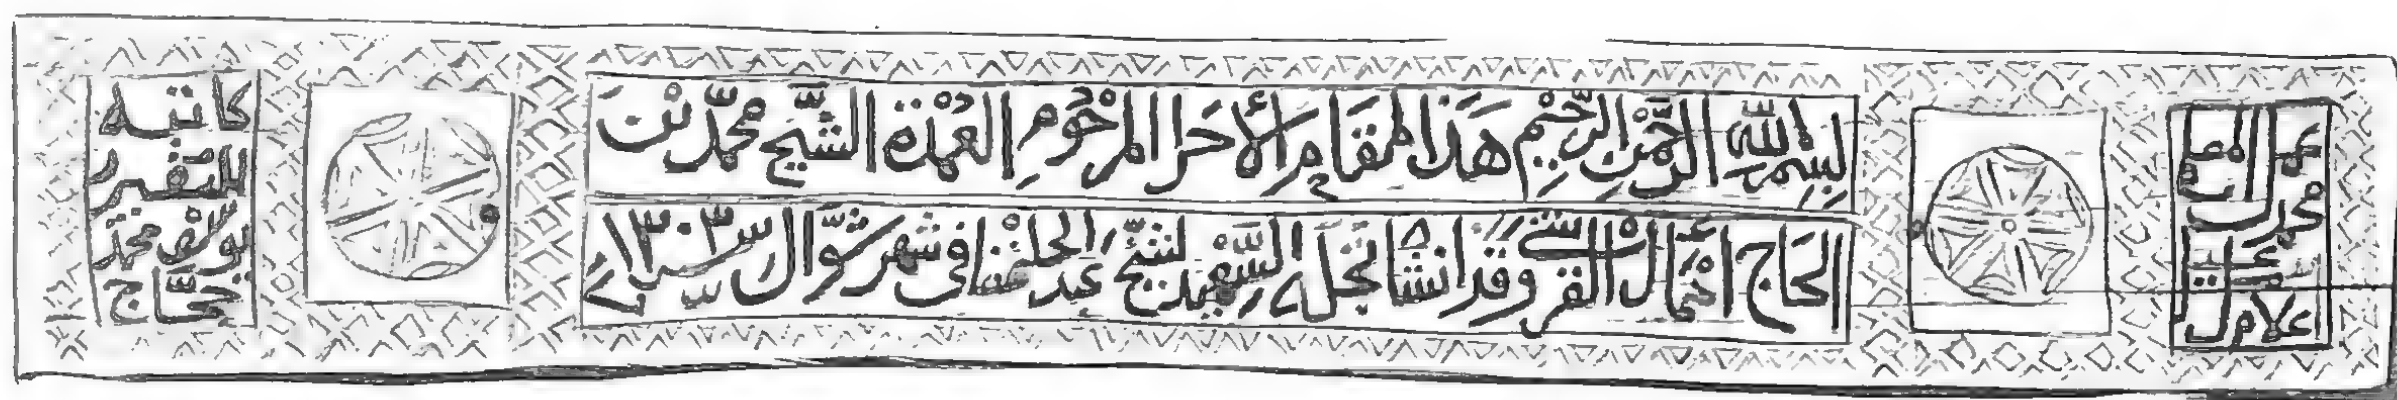 عمل المعلم
محمد
علام
بسم الله الرحمن الرحيم هَذَا المقَام الأحَر المرْحُومِ العُمْدة الشَّيخ محمّد بْن
الحَاج القرشي وقد انشا نجله السَّعِيد الشيخ عبد في شهر شوَّال سنة ١٣٠٣
كاتبه
الفقير
محمد
حجَّاج